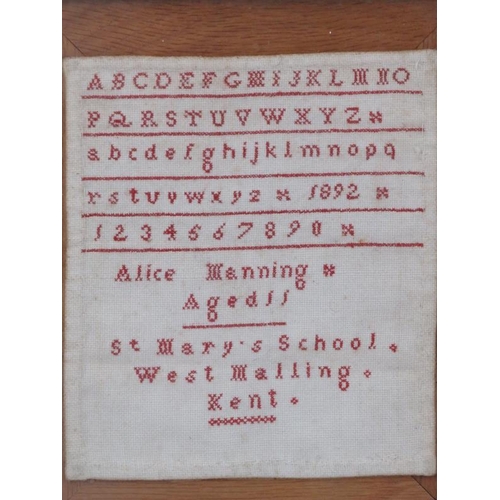 ABCDEFGHIJKLMNO
PQRSTUVWXYZ
abcdefghijklmnopq
rstuvwxyz 1892
1234567890
Alice Manning
Aged 11
St Mary's School.
West Malling.
Kent.